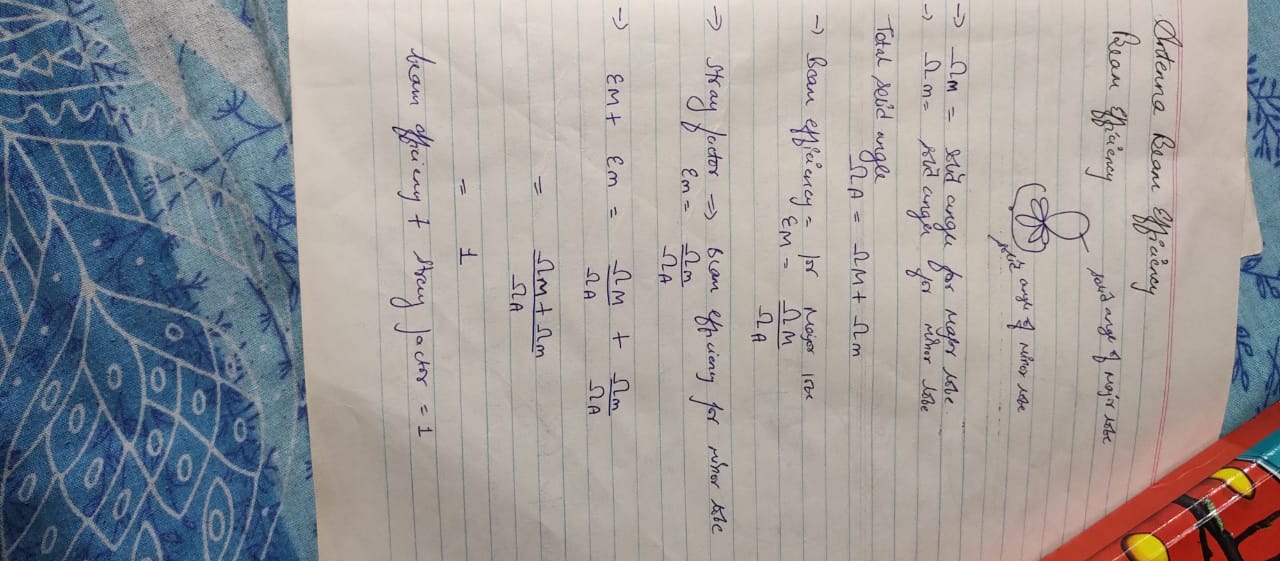 Antenna Beam Efficiency
Beam Efficiency
solid ange of Major lobe
solid angle of minor lobe
→ ΩM = solid angle for Major lobe
→ Ωm = solid angle for minor lobe
Total solid angle
ΩA = ΩM + Ωm
→ Beam efficiency = for Major lobe
εM = ΩM / ΩA
→ Stray factor ⇒ Beam efficieny for minor lobe
εm = Ωm / ΩA
→ εM + εm = ΩM / ΩA + Ωm / ΩA
= ΩM + Ωm / ΩA
= 1
beam efficieny + stray factor = 1